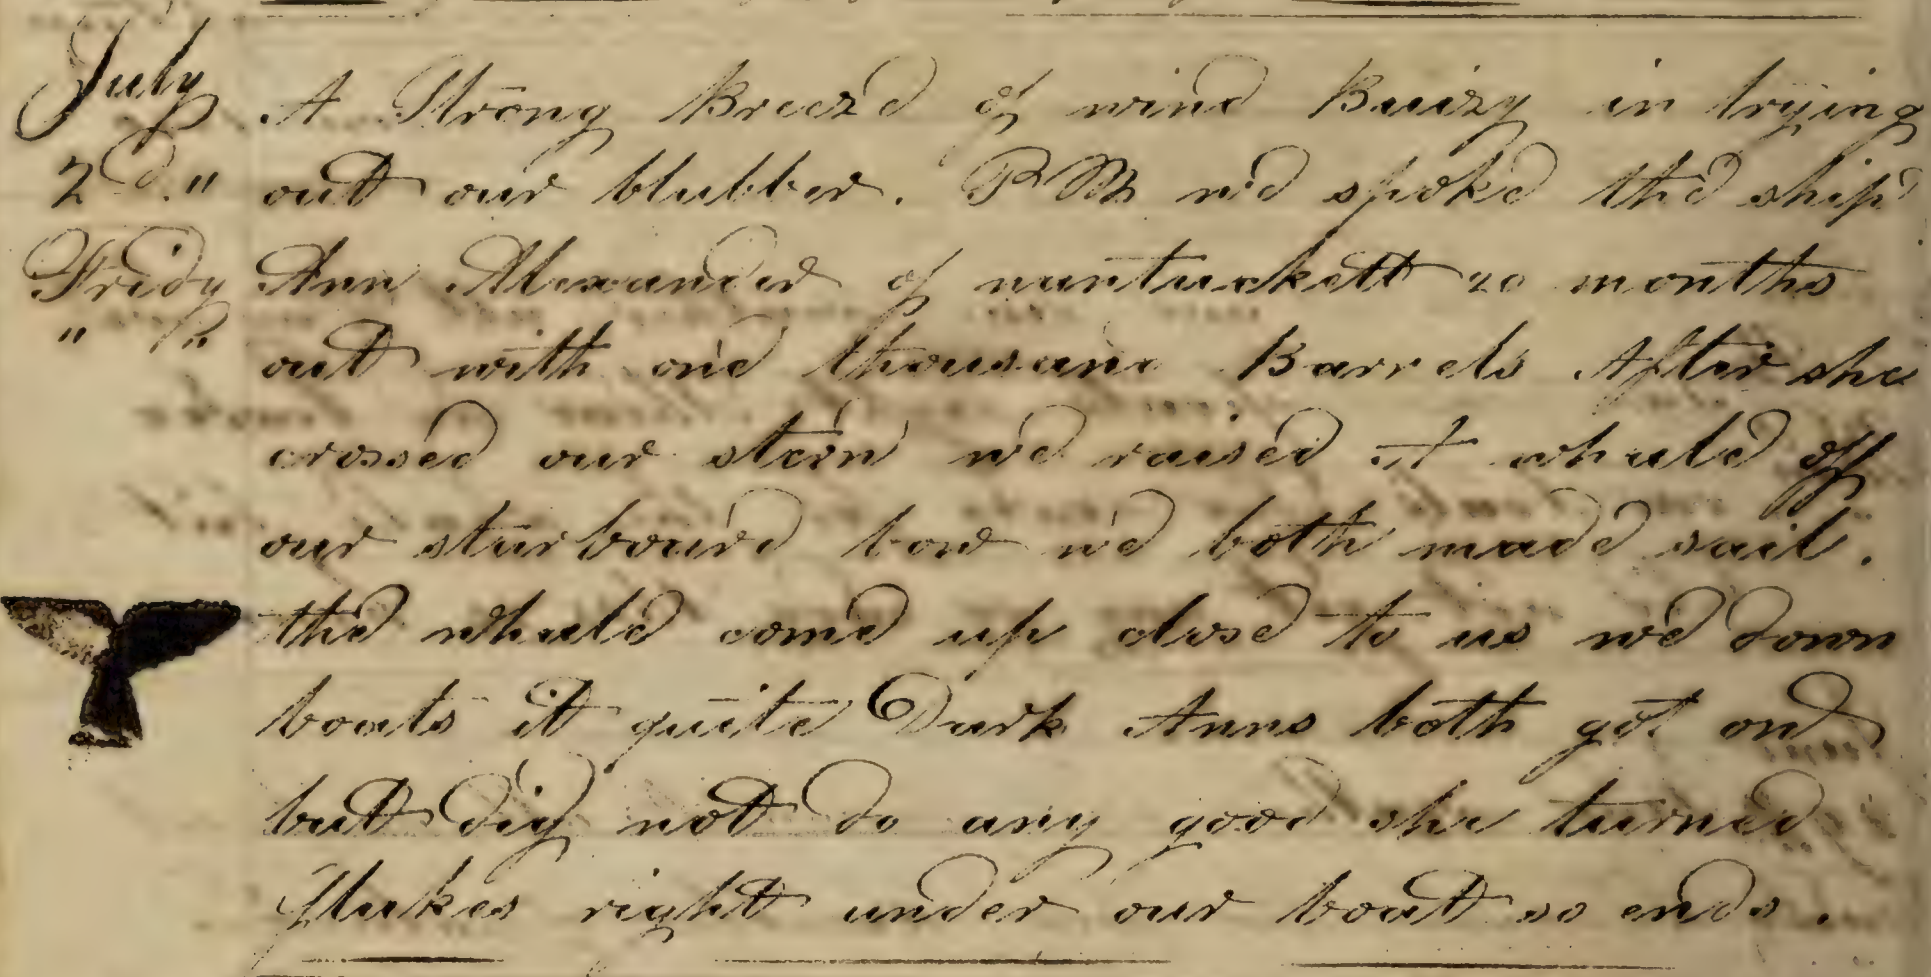 July A Strong Breeze of wind Buizy in trying
2d " out our blubber. PM we spoke the ship
Fridy Ann Alexander of nantuckett 20 months
" out with one thousand Barrels After she
crossed our stern we raised A whale off
our starboard bow we both made sail.
the whale come up close to us we down
boats it quite Dark Anns both got on
but did not do any good she turned
flukes right under our boat so ends.